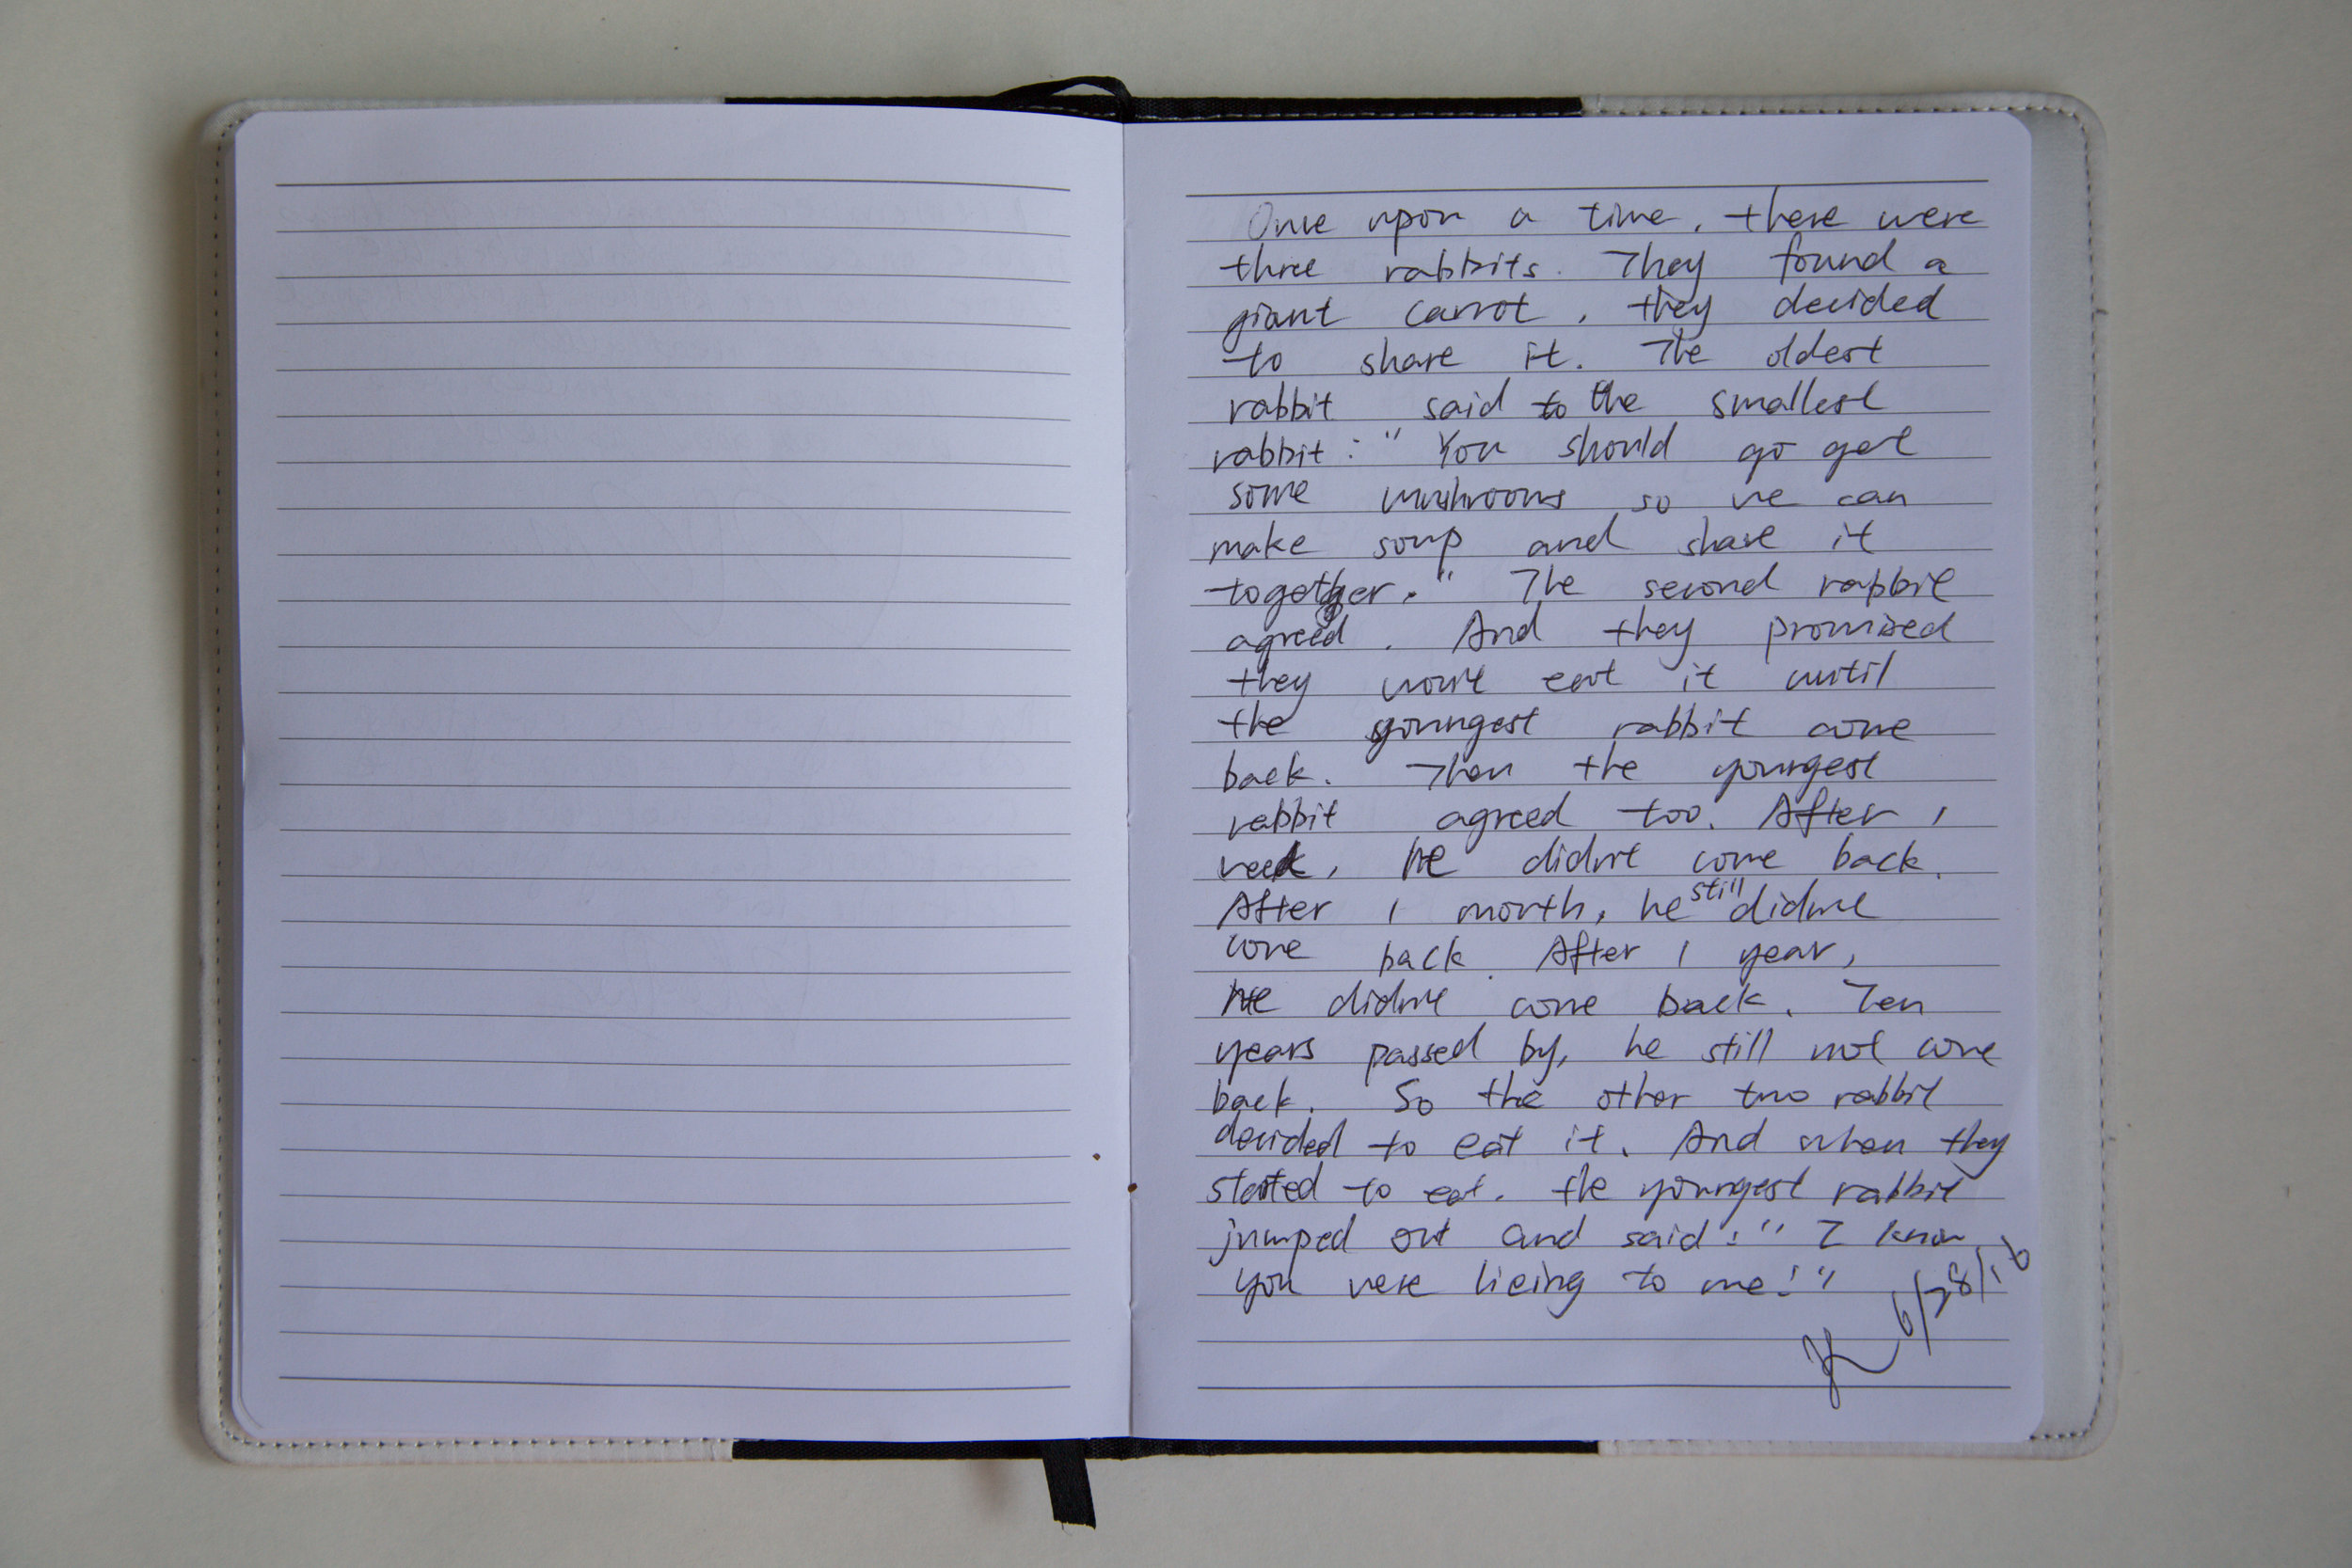 Once upon a time, there were
three rabbits. They found a
giant carrot, they decided
to share it. The oldest
rabbit said to the smallest
rabbit: "You should go get
some mushrooms so we can
make soup and share it
together." The second rabbit
agreed. And they promised
they won't eat it until
the youngest rabbit come
back. Then the youngest
rabbit agreed too. After 1
week, he didn't come back.
After 1 month, he still didn't
come back. After 1 year,
he didn't come back. Ten
years passed by, he still not come
back. So the other two rabbit
decided to eat it. And when they
started to eat. the youngest rabbit
jumped out and said: "I know
you were lieing to me!"
6/28/16